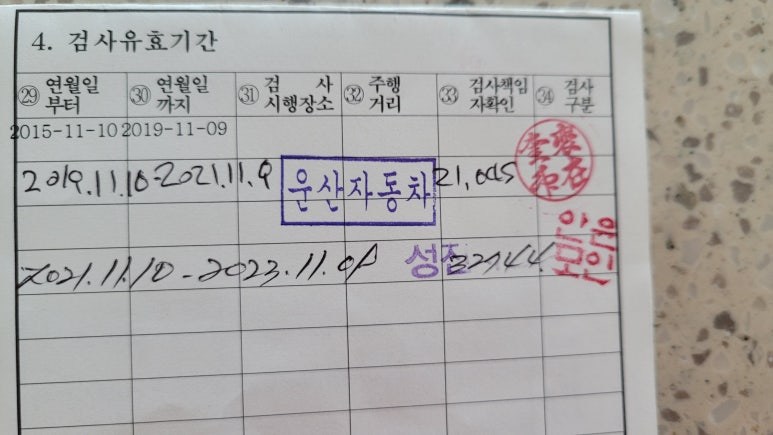 4. 검사유효기간
㉙ 연월일 부터 ㉚ 연월일 까지 ㉛ 검 사 시행장소 ㉜ 주행 거리 ㉝ 검사책임 자확인 ㉞ 검사 구분
2015-11-10 2019-11-09
2019.11.10-2021.11.9 운산자동차 21,045
2021.11.10-2023.11.09 32744